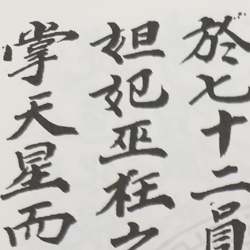 於七十二員
妲妃巫枉
掌天星而